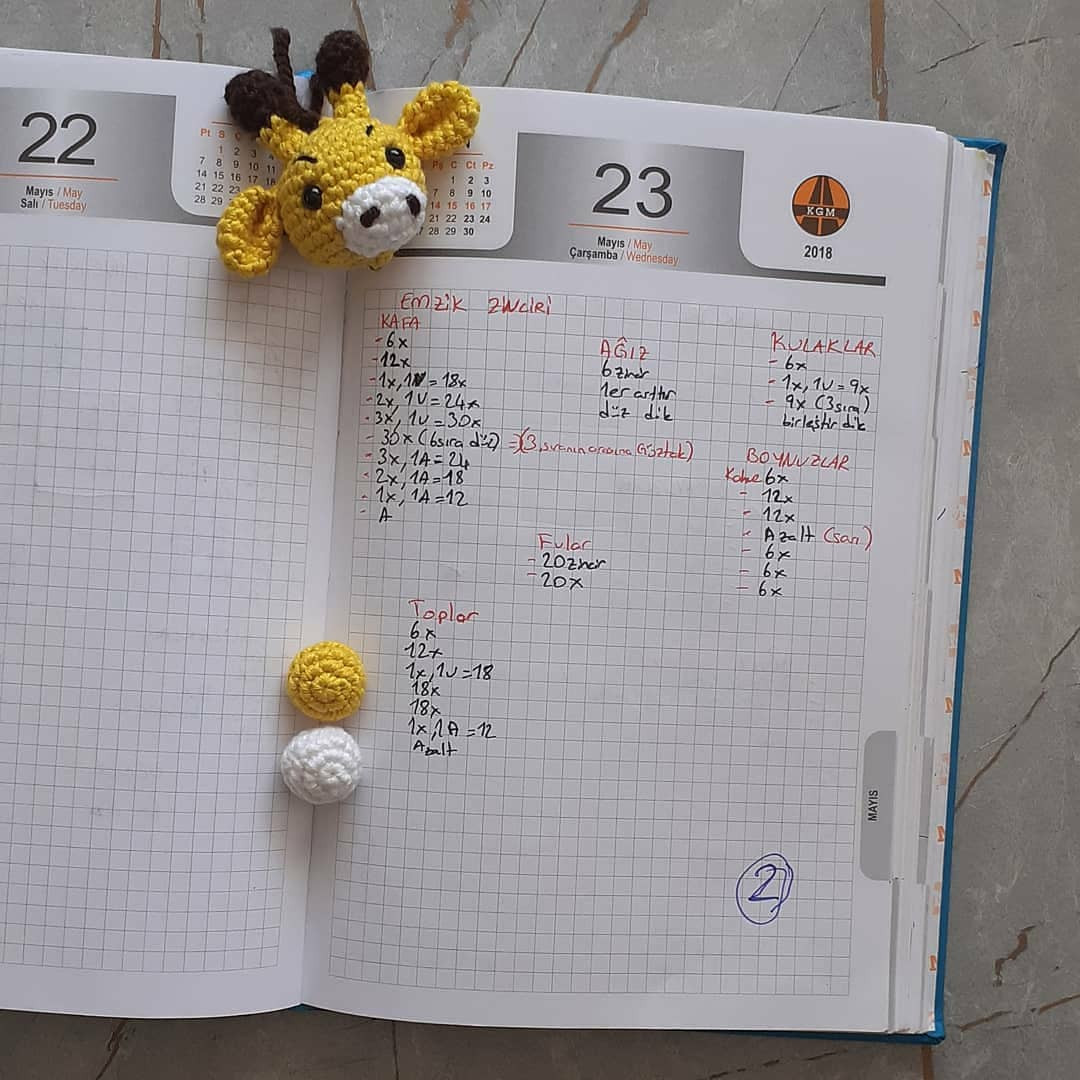 22
Mayıs / May
Salı / Tuesday
Pt S Ç
1 2 3 4
7 8 9 10 11
14 15 16 17 18
21 22 23
28 29
Pe C Ct Pz
1 2 3
7 8 9 10
14 15 16 17
21 22 23 24
28 29 30
23
Mayıs / May
Çarşamba / Wednesday
KGM
2018
EMZiK ZiNCiRi
KAFA
- 6x
- 12x
- 1x, 1V = 18x
- 2x, 1V = 24x
- 3x, 1V = 30x
- 30x (6sıra düz) =>(3. sıranın arasına Göztak)
- 3x, 1A = 24
- 2x, 1A = 18
- 1x, 1A = 12
- A
AĞIZ
6 zncr
1er arttır
düz dik
KULAKLAR
- 6x
- 1x, 1V = 9x
- 9x (3sıra)
birleştir dik
BOYNUZLAR
Kahve 6x
- 12x
- 12x
- Azalt (sarı)
- 6x
- 6x
- 6x
Fular
- 20zncr
- 20x
Toplar
6x
12x
1x, 1V = 18
18x
18x
1x, 1A = 12
Azalt
MAYIS
2